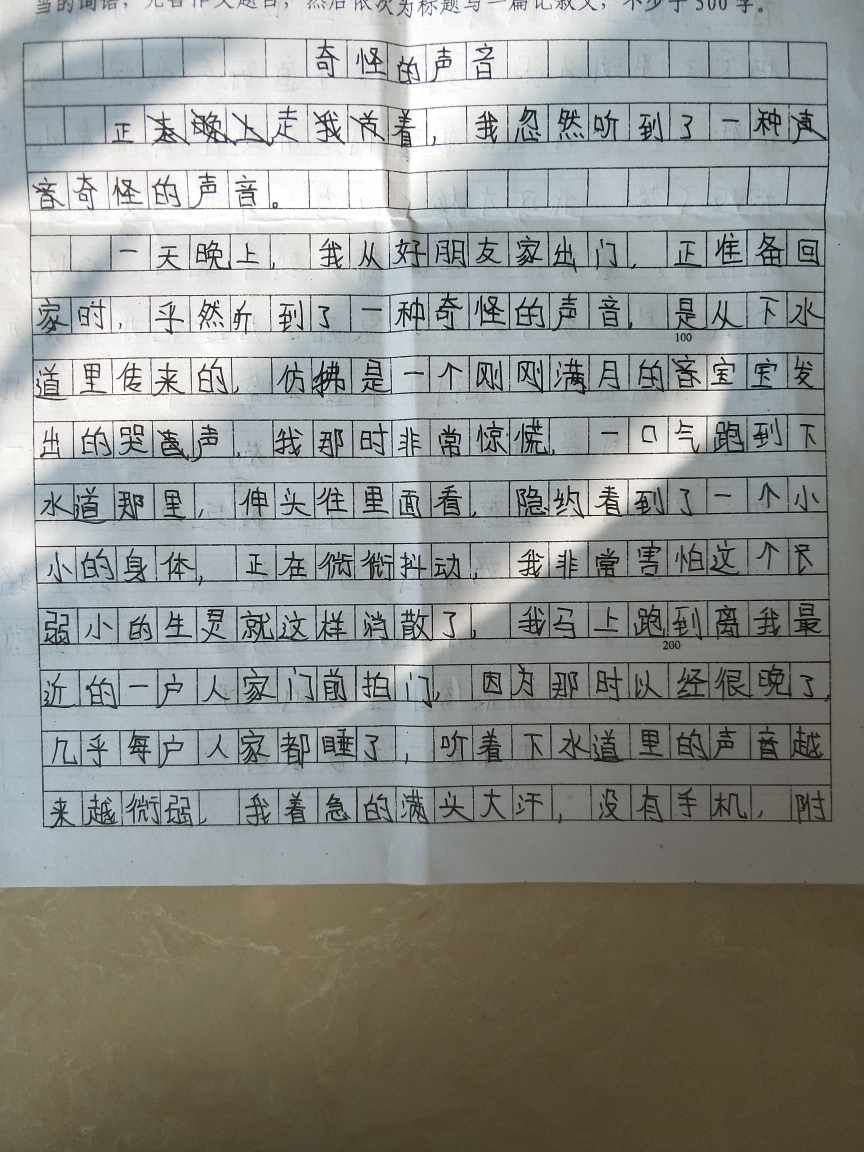 当的词语，完善作文题目，然后依次为标题写一篇记叙文，不少于500字。
奇怪的声音
正走着，我忽然听到了一种
奇怪的声音。
一天晚上，我从好朋友家出门，正准备回
家时，乎然听到了一种奇怪的声音，是从下水
100
道里传来的，仿拂是一个刚刚满月的宝宝发
出的哭声，我那时非常惊慌，一口气跑到下
水道那里，伸头往里面看，隐约看到了一个小
小的身体，正在微微抖动，我非常害怕这个
弱小的生灵就这样消散了，我马上跑到离我最
200
近的一户人家门前拍门，因为那时以经很晚了，
几乎每户人家都睡了，听着下水道里的声音越
来越微弱，我着急的满头大汗，没有手机，附